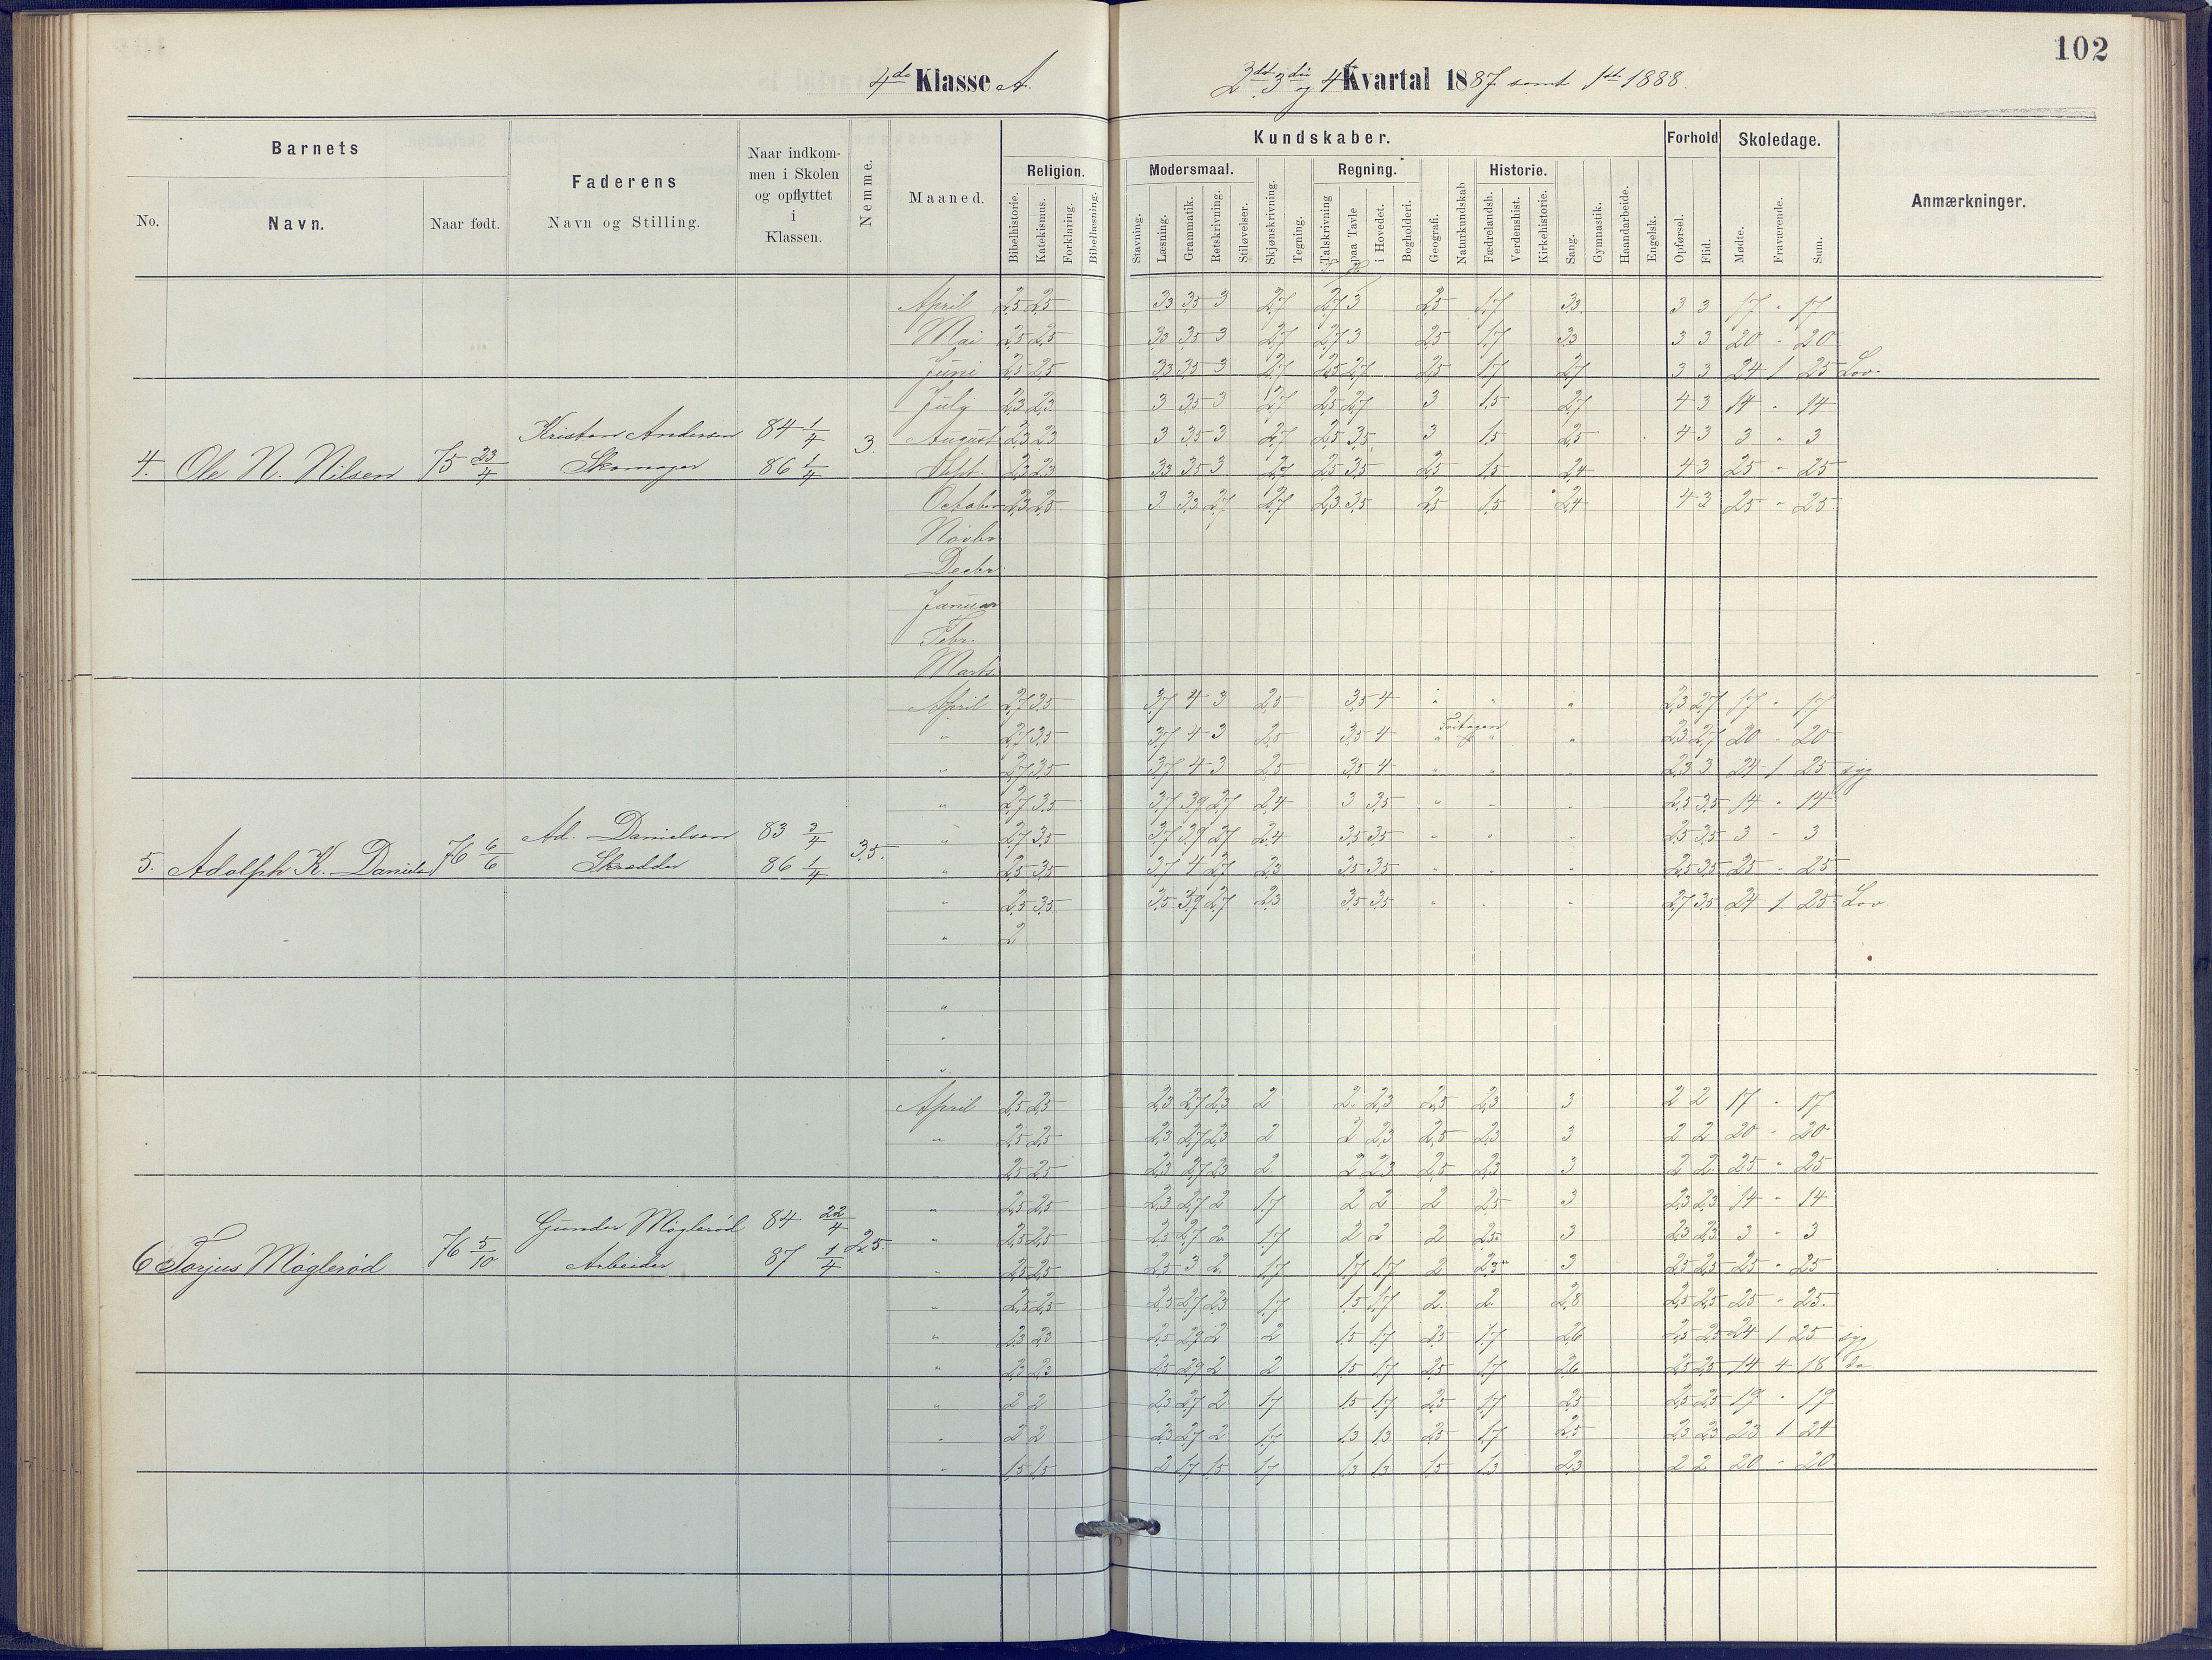 102
4de Klasse A.
2det 3die og 4de Kvartal 1887 samt 1ste 1888.
Barnets
Faderens
Naar indkommen i Skolen og opflyttet i Klassen.
Nemme.
Maaned.
Kundskaber.
Forhold
Skoledage.
Anmærkninger.
No.
Navn.
Naar født.
Navn og Stilling.
Religion.
Modersmaal.
Regning.
Historie.
Bibelhistorie.
Katekismus.
Forklaring.
Bibellæsning.
Stavning.
Læsning.
Grammatik.
Retskrivning.
Stiløvelser.
Skjønskrivning.
Tegning.
Talskrivning
paa Tavle
i Hovedet.
Bogholderi.
Geografi.
Naturkundskab
Fædrelandsh.
Verdenshist.
Kirkehistorie.
Sang.
Gymnastik.
Haandarbeide.
Engelsk.
Opførsel.
Flid.
Mødte.
Fraværende.
Sum.
April 2,5 2,5 3,3 3,5 3 2,7 2,7 3 2,5 1,7 3,3 3 3 17 " 17
Mai 2,5 2,5 3,3 3,5 3 2,7 2,7 3 2,5 1,7 3,3 3 3 20 - 20
Juni 2,5 2,5 3,3 3,5 3 2,7 2,5 2,7 2,5 1,7 2,7 3 3 24 1 25 Lov
July 2,3 2,3 3 3,5 3 2,7 2,5 2,7 3 1,5 2,7 4 3 14 " 14
August 2,3 2,3 3 3,5 3 2,7 2,5 3,5 3 1,5 2,5 4 3 3 " 3
4. Ole N. Nilsen 75 23/4 Kristen Andersen Skomager 84 1/4 86 1/4 3.
Sept. 2,3 2,3 3,3 3,5 3 2,7 2,5 3,5 2,5 1,5 2,4 4 3 25 - 25
October 2,3 2,5 3 3,3 2,7 2,7 2,3 3,5 2,5 1,5 2,4 4 3 25 - 25
Novbr
Decbr
Januar
Febr.
Marts
April 2,7 3,5 3,7 4 3 2,5 3,5 4 " " " 2,3 2,7 17 " 17
" 2,7 3,5 3,7 4 3 2,5 3,5 4 " " " 2,3 2,7 20 - 20
" 2,7 3,5 3,7 4 3 2,5 3,5 4 " " " 2,3 3 24 1 25 syg
" 2,7 3,5 3,7 3,9 2,7 2,4 3 3,5 " " " 2,5 3,5 14 " 14
" 2,7 3,5 3,7 3,9 2,7 2,4 3,5 3,5 " " " 2,5 3,5 3 - 3
5. Adolph K. Daniels 76 6/6 Ad. Danielsen Skrædder 83 3/4 86 1/4 3,5.
" 2,5 3,5 3,7 4 2,7 2,3 3,5 3,5 " " " 2,5 3,5 25 - 25
" 2,5 3,5 3,5 3,9 2,7 2,3 3,5 3,5 " " " 2,7 3,5 24 1 25 Lov
" 2
"
"
"
April 2,5 2,5 2,3 2,7 2,3 2 2 2,3 2,5 2,3 3 2 2 17 " 17
" 2,5 2,5 2,3 2,7 2,3 2 2 2,3 2,5 2,3 3 2 2 20 - 20
" 2,5 2,5 2,3 2,7 2,3 2 2 2,3 2,5 2,3 3 2 2 25 " 25
" 2,5 2,5 2,3 2,7 2 1,7 2 2 2 2,5 3 2,3 2,3 14 - 14
" 2,5 2,5 2,5 2,7 2 1,7 2 2 2 2,5 3 2,3 2,3 3 " 3
6 Torjus Møglerød 76 5/10 Gunder Møglerød Arbeider 84 22/4 87 1/4 2,5.
" 2,5 2,5 2,5 3 2 1,7 1,7 1,7 2 2,3 3 2,5 2,5 25 " 25
" 2,5 2,5 2,5 2,7 2,3 1,7 1,5 1,7 2 2 2,8 2,5 2,5 25 - 25
" 2,3 2,3 2,5 2,9 2 2 1,5 1,7 2,5 1,7 2,6 2,5 2,5 24 1 25 syg
" 2,3 2,3 2,5 2,9 2 2 1,5 1,7 2,5 1,7 2,6 2,5 2,5 14 4 18 do
" 2 2 2,3 2,7 2 1,7 1,5 1,7 2,5 1,7 2,5 2,5 2,5 19 " 19
" 2 2 2,3 2,7 2 1,7 1,3 1,3 2,5 1,7 2,5 2,3 2,3 23 1 24
" 1,5 1,5 2 1,7 1,5 1,7 1,3 1,3 1,5 1,3 2,3 2 2 20 - 20